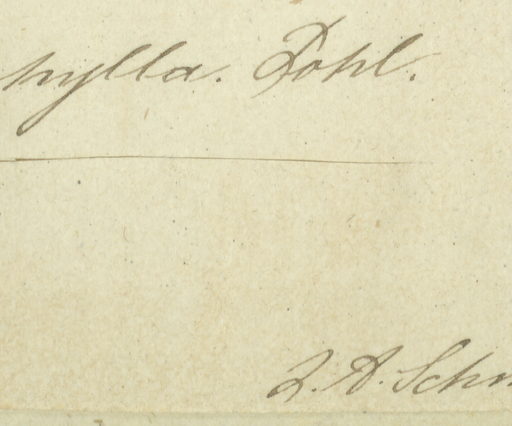 hylla. Pohl.
J. A. Schm